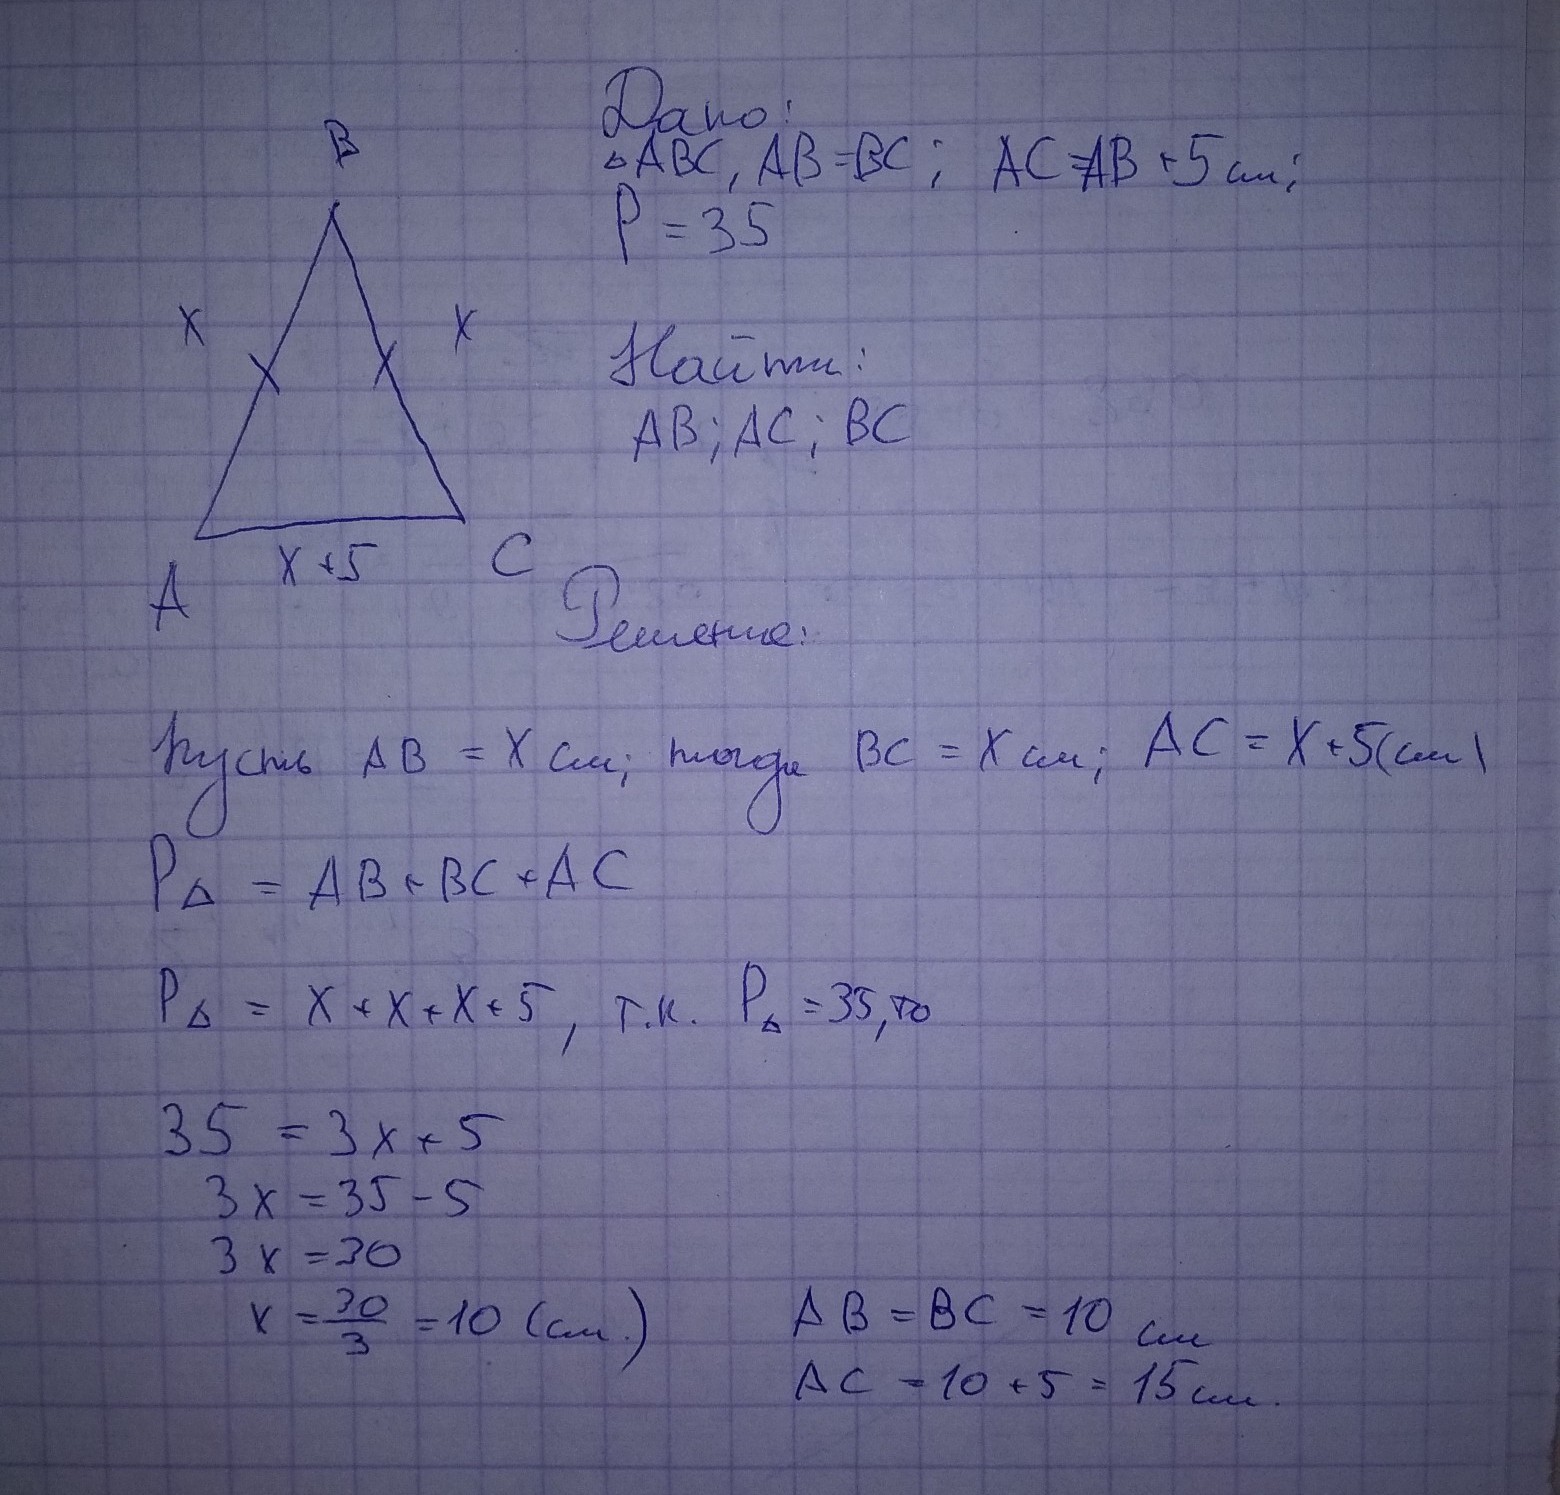 B
x
x
A
x+5
C
Дано:
△ABC, AB=BC; AC=AB+5 см;
P = 35
Найти:
AB; AC; BC
Решение:
Пусть AB = x см; тогда BC = x см; AC = x+5(см)
P△ = AB+BC+AC
P△ = x+x+x+5, т.к. P△ = 35, то
35 = 3x+5
3x = 35-5
3x = 30
x = 30/3 = 10 (см.)
AB = BC = 10 см
AC = 10+5 = 15 см.